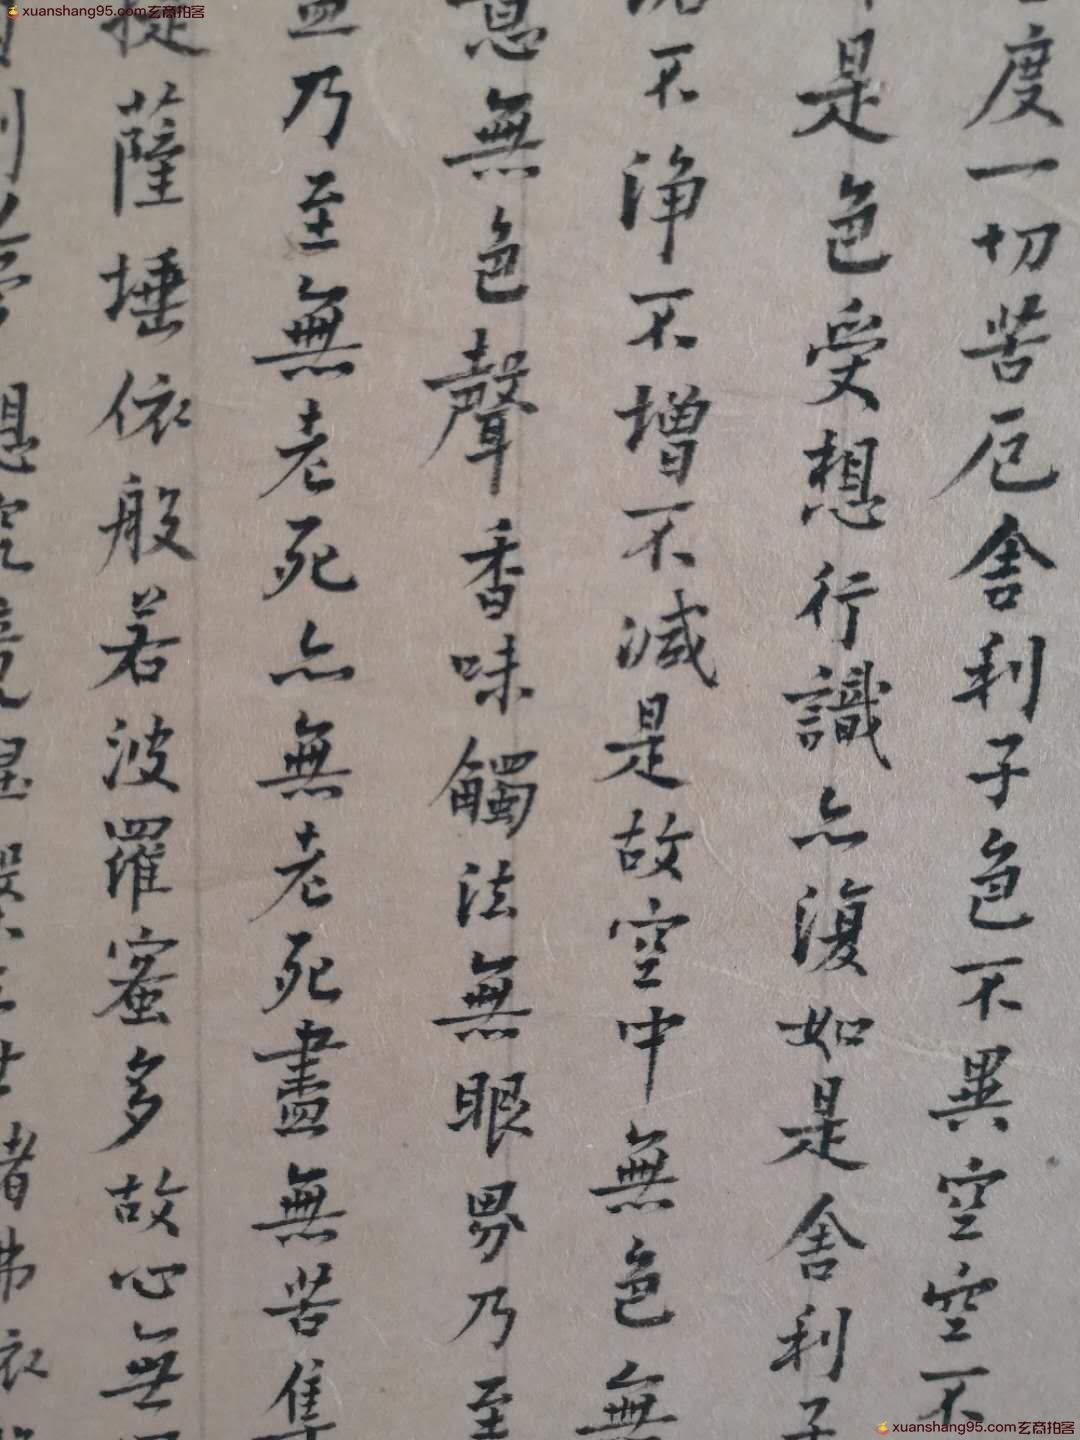 xuanshang95.com玄商拍客
度一切苦厄舍利子色不異空空不
是色受想行識亦復如是舍利子
不浄不增不減是故空中無色無
意無色聲香味觸法無眼界乃至
盡乃至無老死亦無老死盡無苦集
提薩埵依般若波羅蜜多故心無
想究竟涅槃三世諸佛依
xuanshang95.com玄商拍客